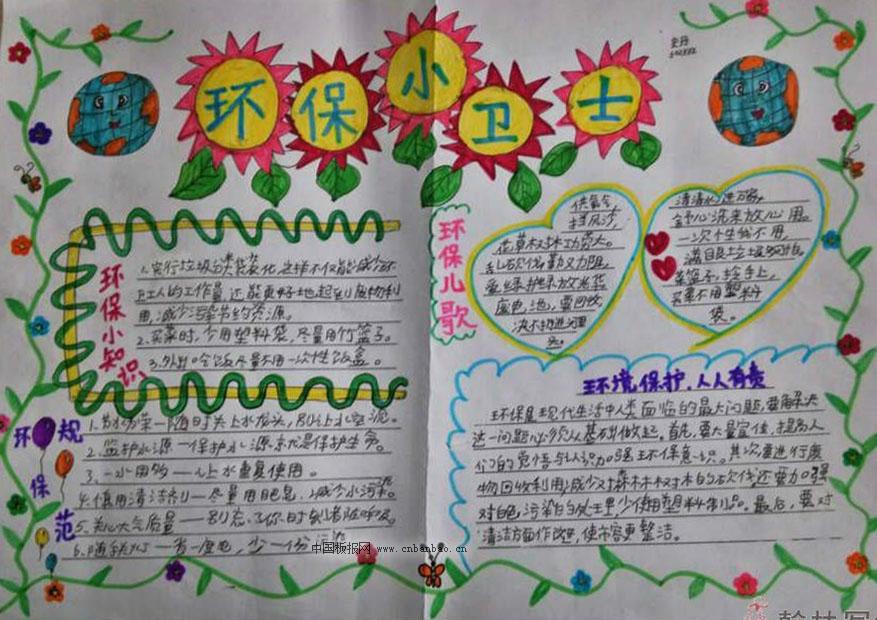 环保小卫士
环保小知识
1.实行垃圾分类袋装化，这样不仅能减少环
卫工人的工作量，还能更好地起到废物利
用，减少污染节约资源。
2.买菜时，少用塑料袋，尽量用竹篮子。
3.外出吃饭尽量不用一次性饭盒。
环保规范
1.节水为荣—随时关上水龙头，别让水空流。
2.监护水源—保护水源就是保护生命。
3.一水多用—让水重复使用。
4.慎用清洁剂—尽量用肥皂，减少水污染。
5.关心大气质量—别忘了你时刻都在呼吸。
6.随手关灯—省一度电，少一份污染
环保儿歌
供氧气，
挡风沙，
花草树木功劳大。
乱砍伐
废电池，要回收
清清水进万家，
舒心洗来放心用。
一次性我不用，
满目垃圾
菜篮子，拎手上，
买菜不用塑料
袋。
环境保护，人人有责
环保是现代生活中人类面临的最大问题，要解决
这一问题必须从基础做起。首先，要大量宣传，提高人
们的觉悟与认识，加强环保意识。其次要进行废
物回收利用，减少对森林树木的砍伐，还要加强
对白色污染的处理，少使用塑料制品。最后，要对
清洁方面作改进，使市容更整洁。
中国板报网 www.cnbanbao.cn